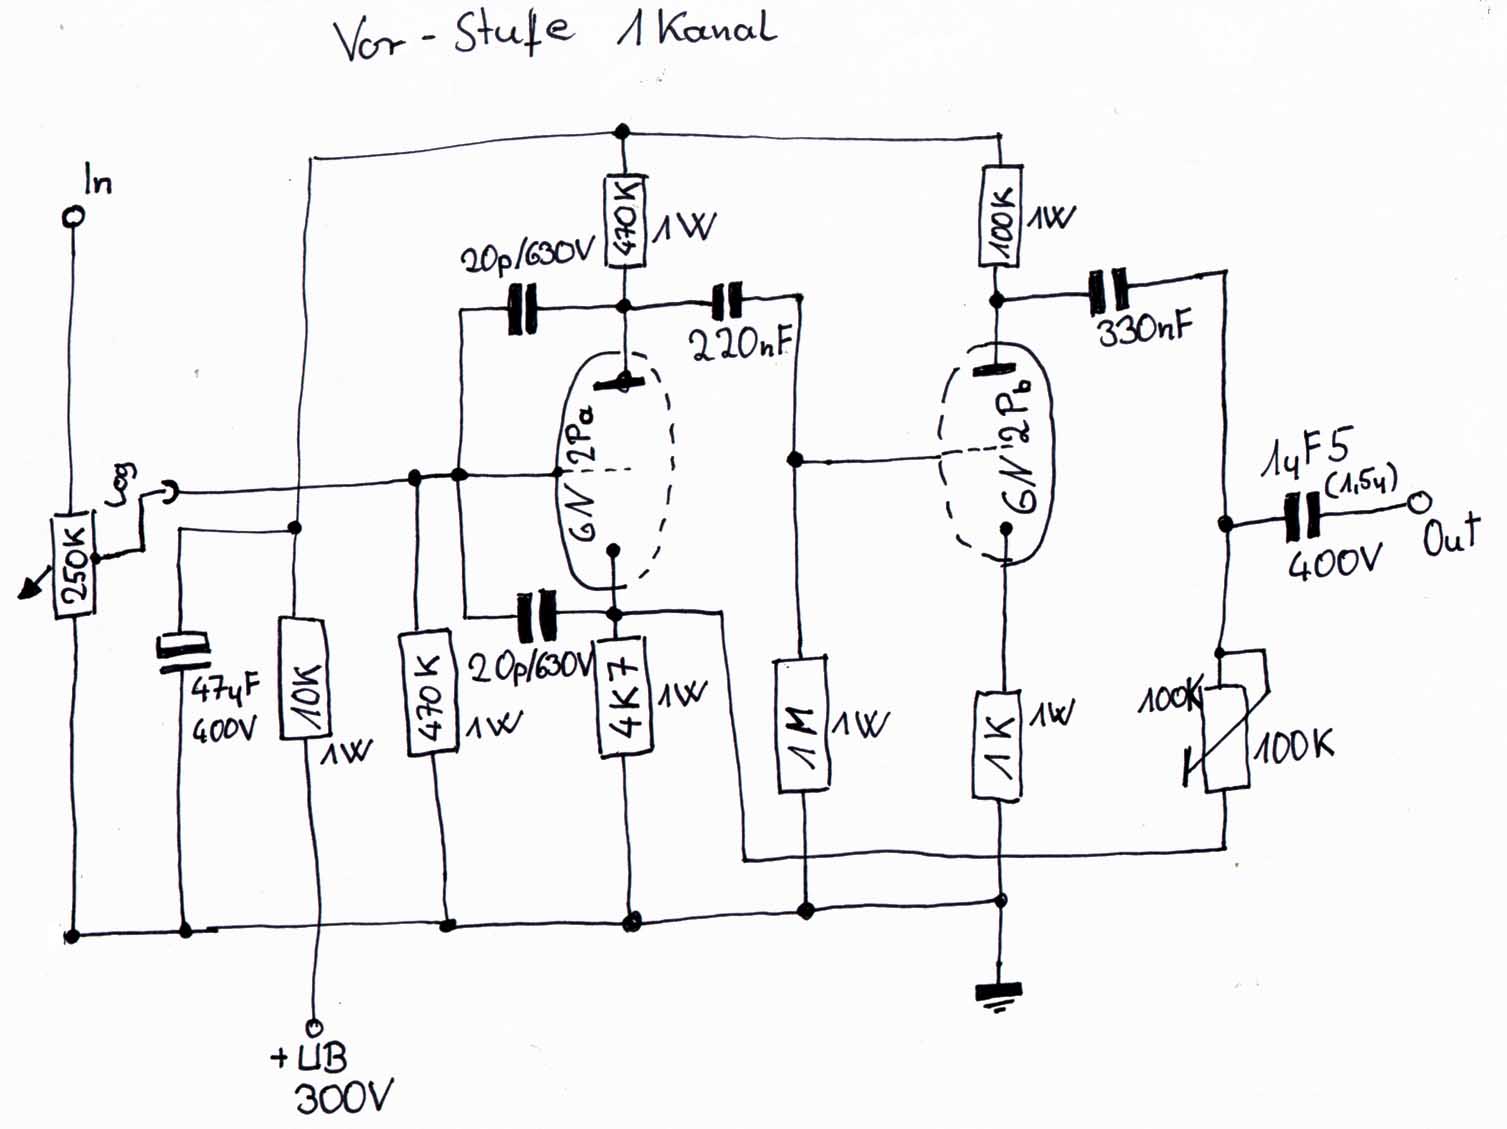 Vor-Stufe 1 Kanal
In
470K
1W
100K
1W
20p/630V
220nF
330nF
6N 2Pa
6N 2Pb
Log
250K
1µF5
(1,5µ)
400V
Out
47µF
400V
10K
1W
470K
1W
20p/630V
4K7
1W
1M
1W
1K
1W
100K
100K
+UB
300V